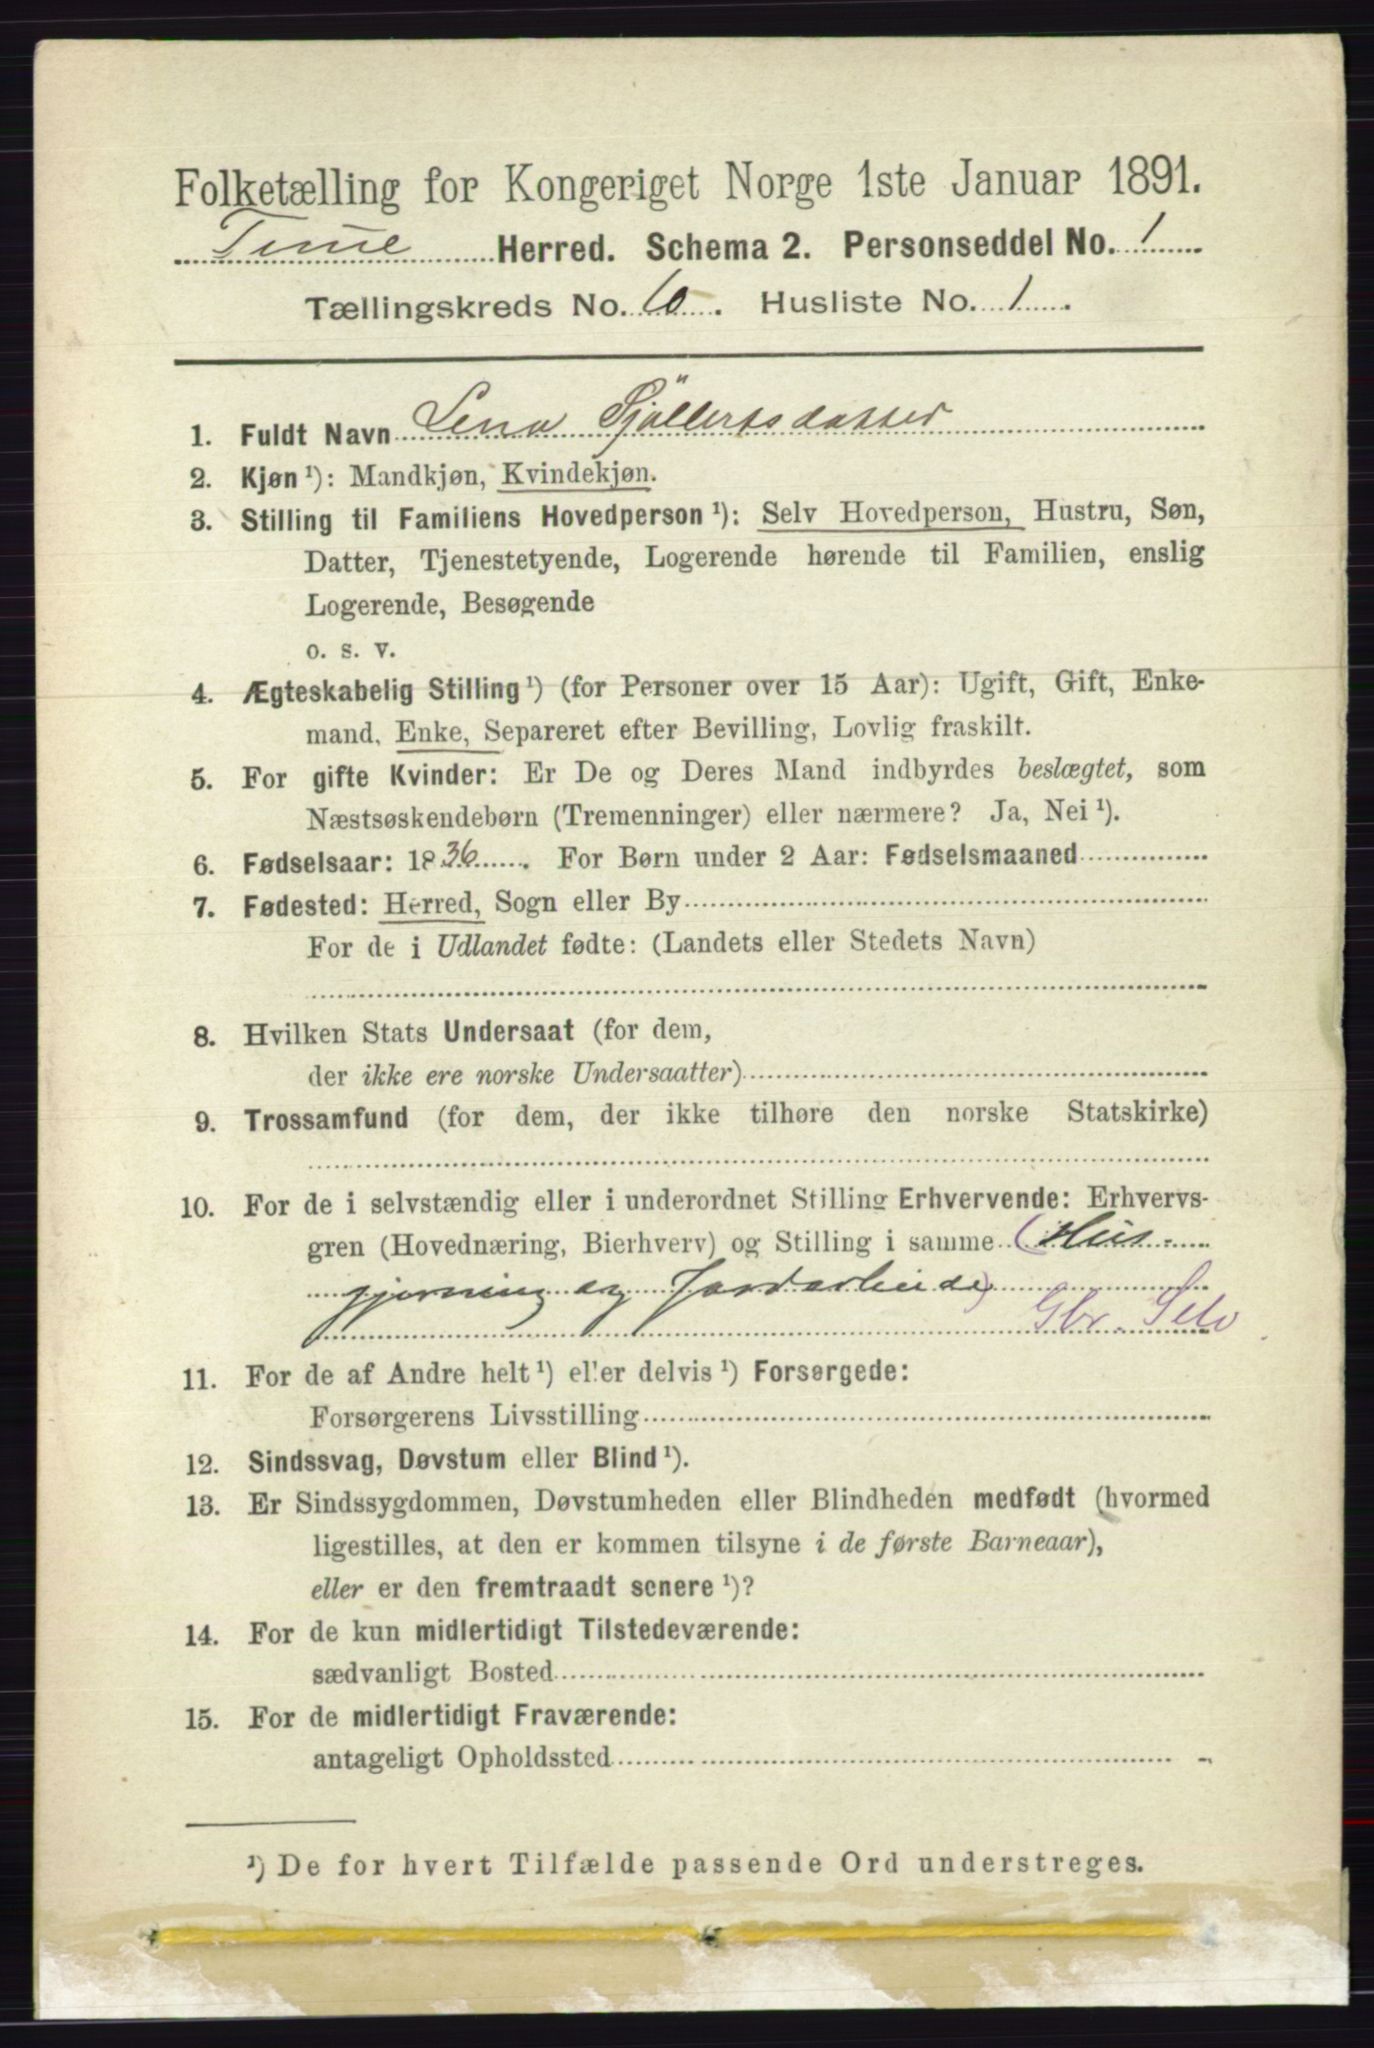 Folketælling for Kongeriget Norge 1ste Januar 1891.
Time Herred. Schema 2. Personseddel No. 1
Tællingskreds No. 6. Husliste No. 1.
1. Fuldt Navn Lena Sjöllertsdatter
2. Kjøn ¹): Mandkjøn, Kvindekjøn.
3. Stilling til Familiens Hovedperson ¹): Selv Hovedperson, Hustru, Søn,
Datter, Tjenestetyende, Logerende hørende til Familien, enslig
Logerende, Besøgende
o. s. v.
4. Ægteskabelig Stilling ¹) (for Personer over 15 Aar): Ugift, Gift, Enke-
mand, Enke, Separeret efter Bevilling, Lovlig fraskilt.
5. For gifte Kvinder: Er De og Deres Mand indbyrdes beslægtet, som
Næstsøskendebørn (Tremenninger) eller nærmere? Ja, Nei ¹).
6. Fødselsaar: 1836. For Børn under 2 Aar: Fødselsmaaned
7. Fødested: Herred, Sogn eller By
For de i Udlandet fødte: (Landets eller Stedets Navn)
8. Hvilken Stats Undersaat (for dem,
der ikke ere norske Undersaatter)
9. Trossamfund (for dem, der ikke tilhøre den norske Statskirke)
10. For de i selvstændig eller i underordnet Stilling Erhvervende: Erhvervs-
gren (Hovednæring, Bierhverv) og Stilling i samme (Hus-
gjerning og Jordarbeide)
Gbr. Selv
11. For de af Andre helt ¹) eller delvis ¹) Forsørgede:
Forsørgerens Livsstilling
12. Sindssvag, Døvstum eller Blind ¹).
13. Er Sindssygdommen, Døvstumheden eller Blindheden medfødt (hvormed
ligestilles, at den er kommen tilsyne i de første Barneaar),
eller er den fremtraadt senere ¹)?
14. For de kun midlertidigt Tilstedeværende:
sædvanligt Bosted
15. For de midlertidigt Fraværende:
antageligt Opholdssted
¹) De for hvert Tilfælde passende Ord understreges.